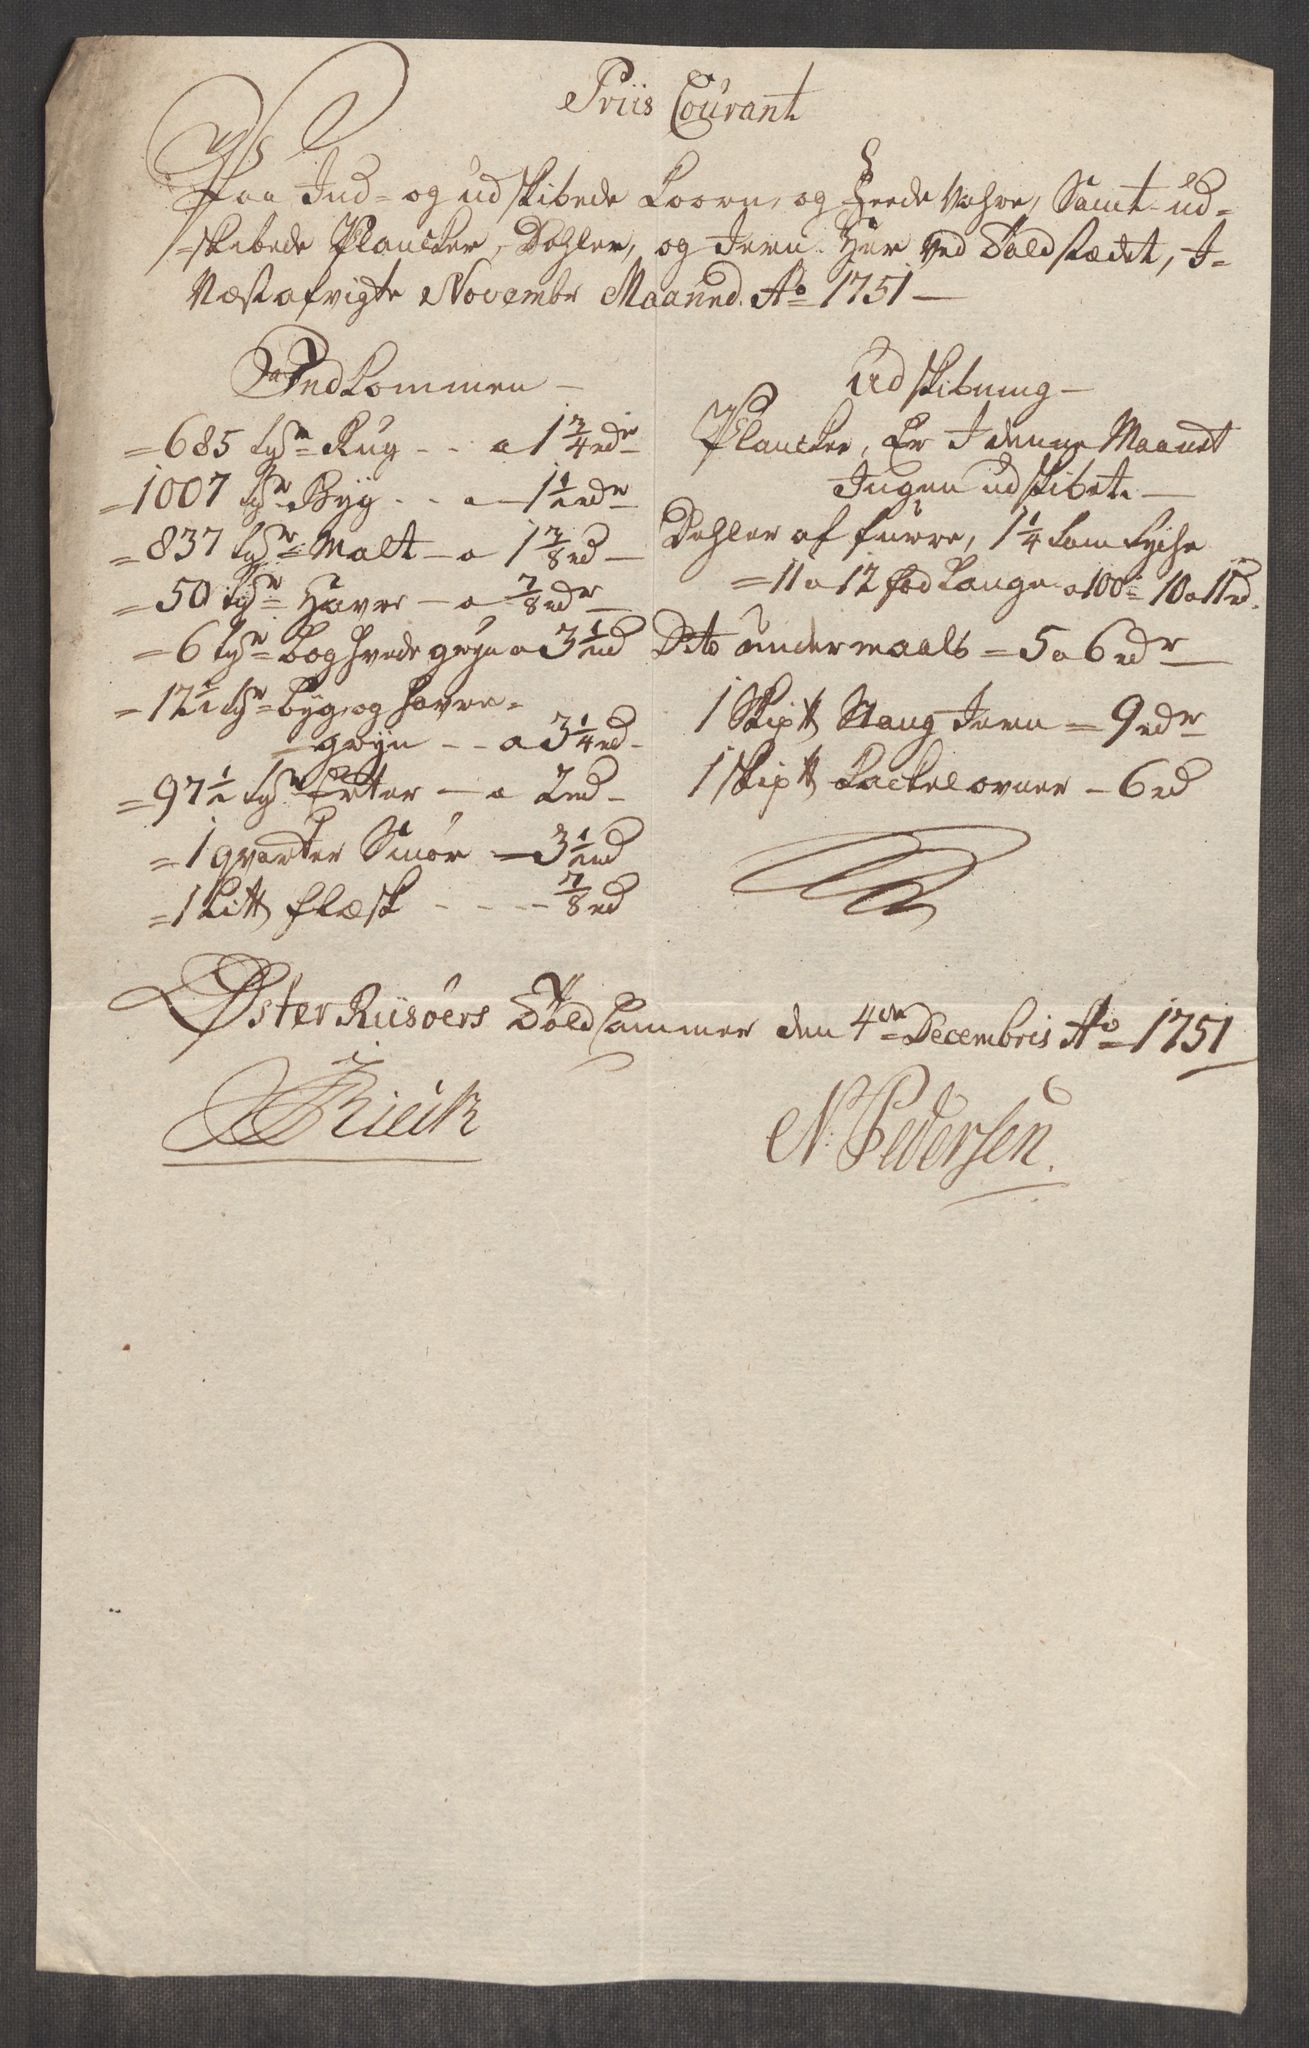 Priis Courant
Paa Ind- og udskibede Korn, og Feede Wahre, Samt ud-
skibede Plancker, Dehler, og Jern. Her Ved Toldstædet, I-
Næstafvigte Novembr Maaned. Ao 1751 —
Indkommen —
= 685 tdr Rug - - a 1 3/4 rdr
= 1007 tdr Byg - - a — 1 1/2 rdr
= 837 tdr Malt — a 1 7/8 rd —
= 50 tdr Havre — a 7/8 rdr
= 6 tdr boghvede gryn a 3 1/2 rd
= 12 1/2 tdr byg og havre-
gryn - - a 3 1/4 rd -
= 97 1/2 tdr Erter — a 2 rd -
= 1 qvarter Smør — 3 1/2 rd
= 1 Li℔ flæsk - - - - 7/8 rd
Udskibning —
Plancker, Er I denne Maanet
Ingen udskibet. —
Dehler af furre, 1 1/4 tom tyche
= 11 a 12 fod Lange a 100 = 10 a 11 rd.
Dito undermaals = 5 a 6 rdr
1 Skip℔ Stang Jern = 9 rdr
1 skip℔ Kackelovner — 6 rd
Øster Riisøers Toldkammer den 4de Decembris Ao 1751
N: Pedersen.